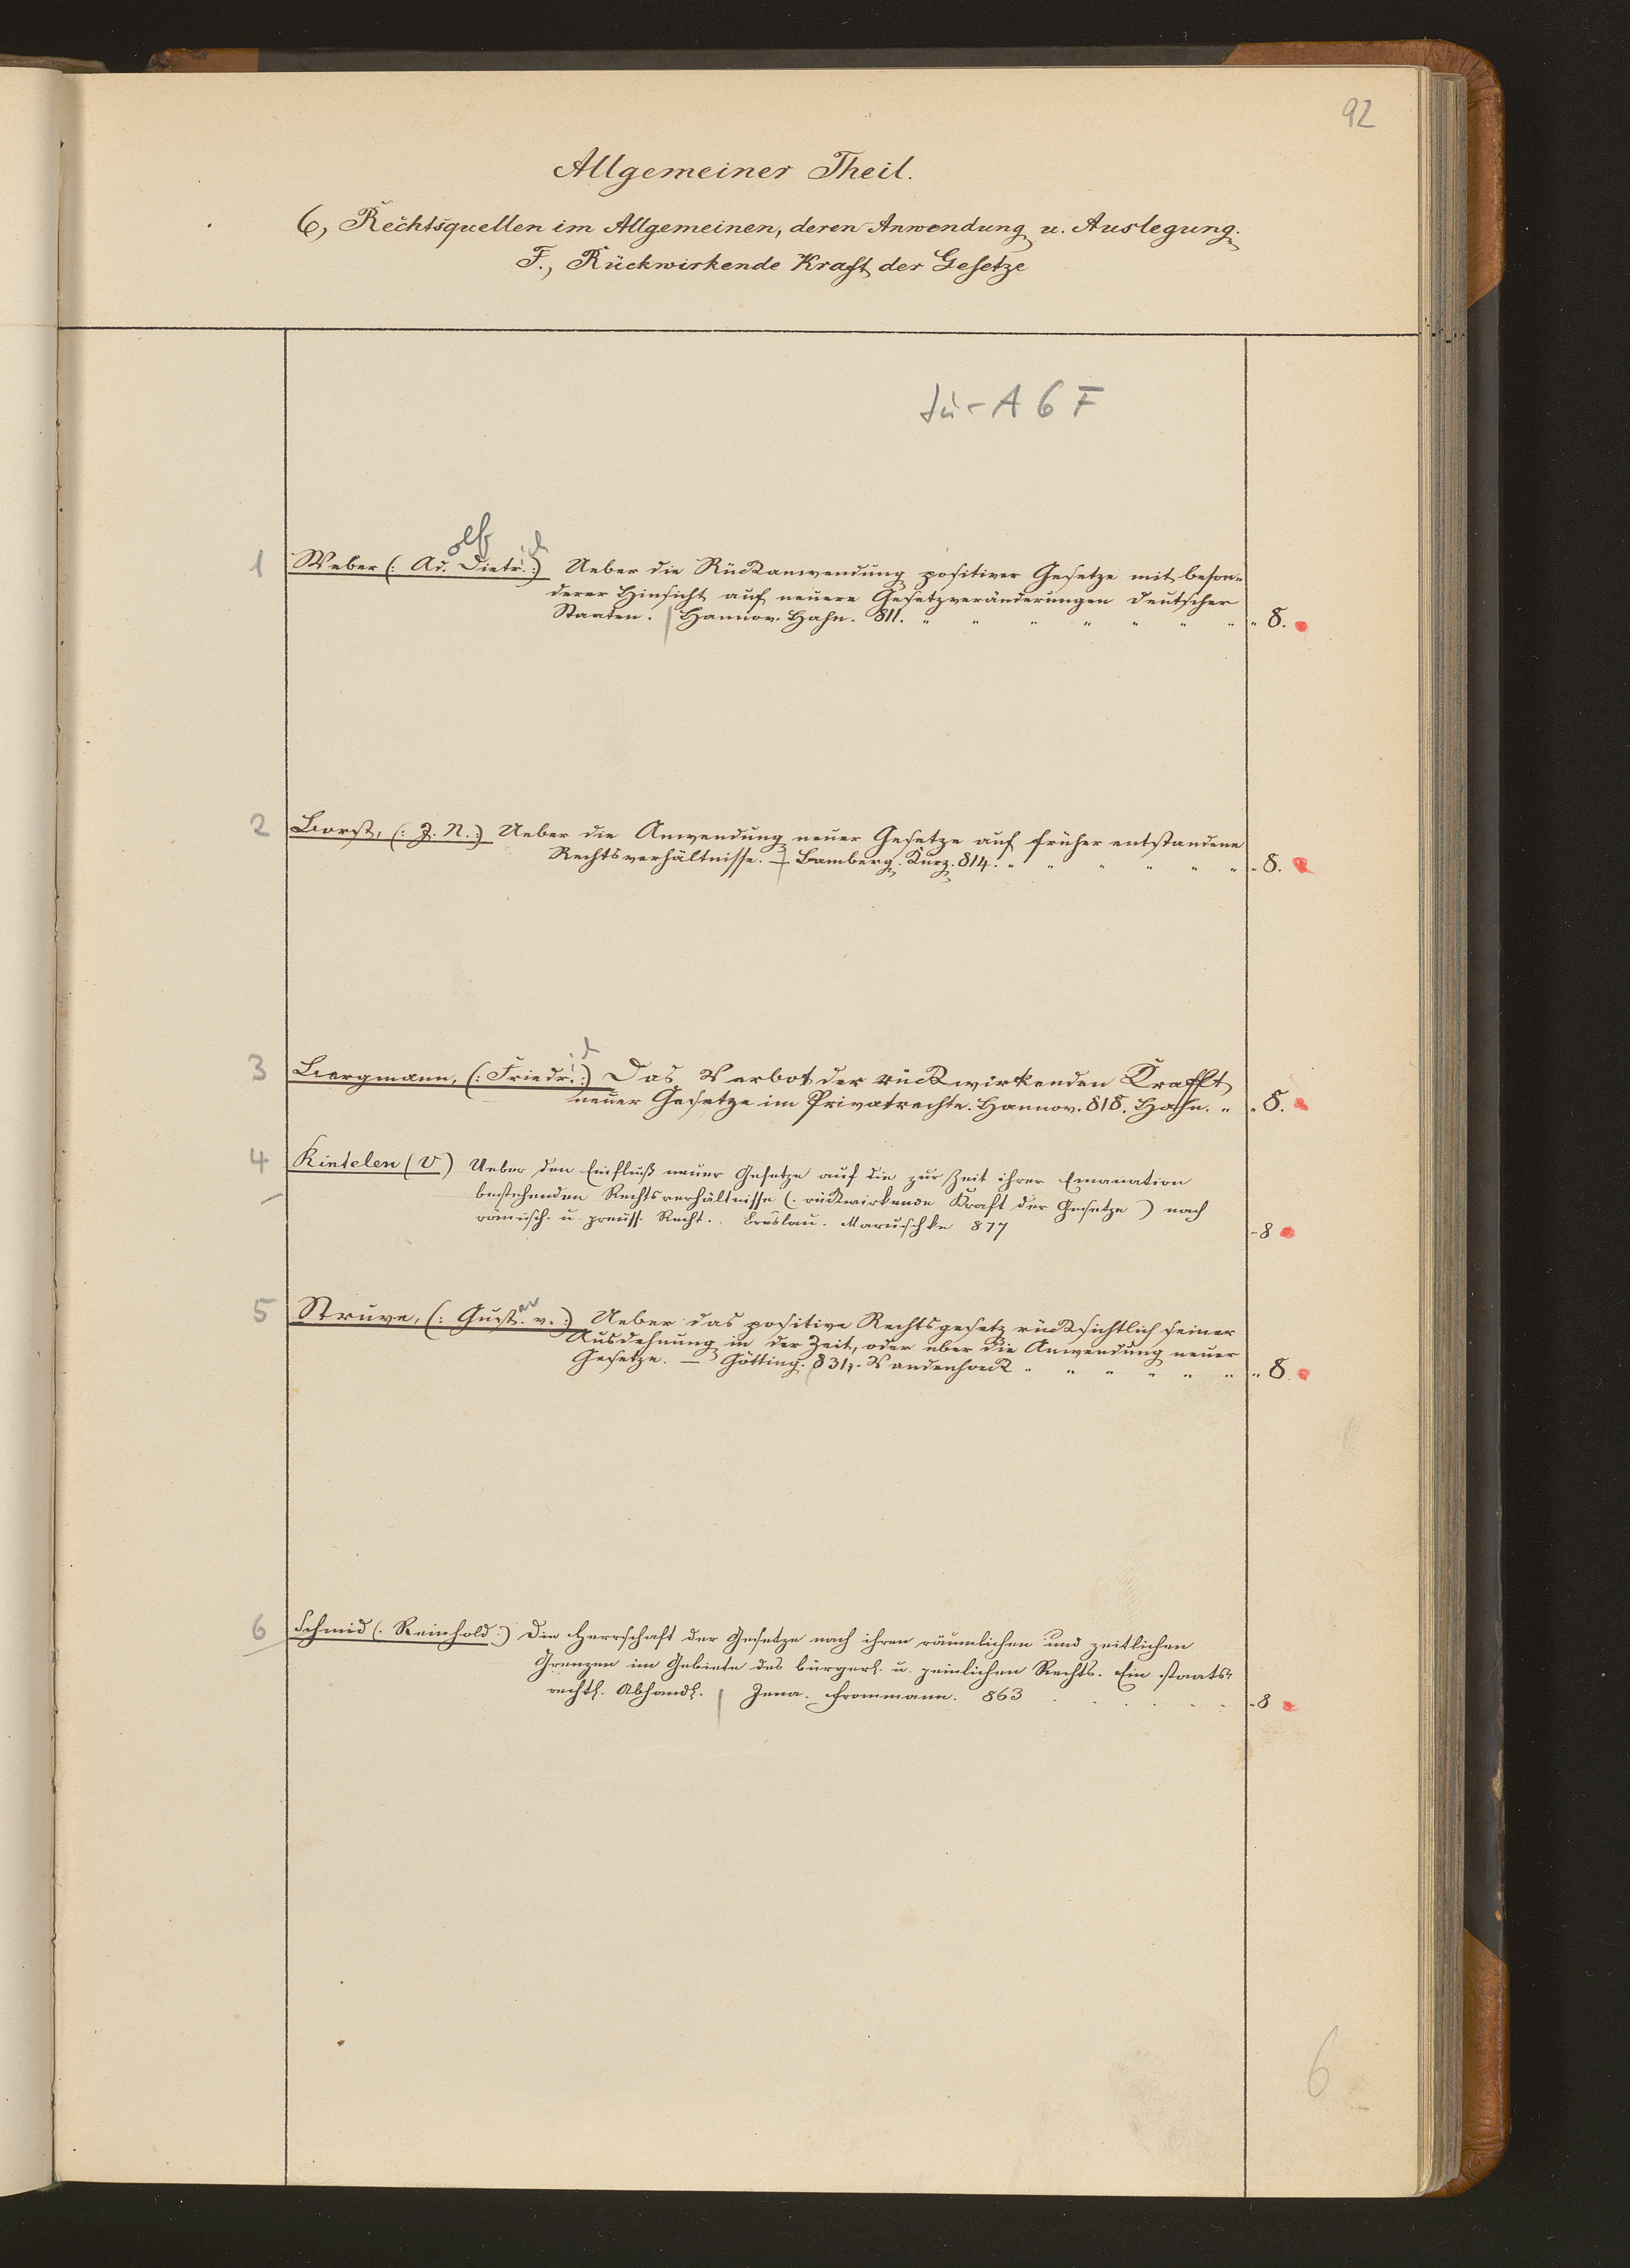 92
Allgemeiner Theil.
6, Rechtsquellen im Allgemeinen, deren Anwendung u. Auslegung.
F., Rückwirkende Kraft der Gesetze
Jur A 6 F
olf d
1 Weber (: Ad. Dietr. :) Ueber die Rückanwendung positiver Gesetze mit beson-
derer Hinsicht auf neuere Gesetzveränderungen deutscher
Staaten. | Hannov. Hahn. 811. " " " " " " " " 8.
2 Borst, (: J. N. :) Ueber die Anwendung neuer Gesetze auf früher entstandene
Rechtsverhältnisse. – Bamberg. Kunz. 814. " " " " " " " 8.
d
3 Bergmann, (: Friedr. :) Das Verbot der rückwirkenden Krafft
neuer Gesetze im Privatrechte. Hannov. 818. Hahn. " " 8.
4 Rintelen (V) Ueber den Einfluß neuer Gesetze auf die zur Zeit ihrer Emanation
bestehenden Rechtsverhältnisse (. rückwirkende Kraft der Gesetze ) nach
römisch. u. preuss. Recht. . Breslau. Maruschke 877 - 8
av
5 Struve, (: Gust. v. :) Ueber das positive Rechtsgesetz rücksichtlich seiner
Ausdehnung in der Zeit, oder über die Anwendung neuer
Gesetze. – Götting. 831. Vandenhoeck " " " " " " " 8.
6 Schmid (. Reinhold .) Die Herrschaft der Gesetze nach ihren räumlichen und zeitlichen
Grenzen im Gebiete des bürgerl. u. peinlichen Rechts. Ein staats-
rechtl. Abhandl. | Jena. Frommann. 863 . . . . . . - 8
6